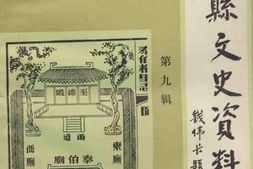 縣文史資料
钱伟长题
第九辑
至德殿
甬道
東廡
西廡
泰伯廟